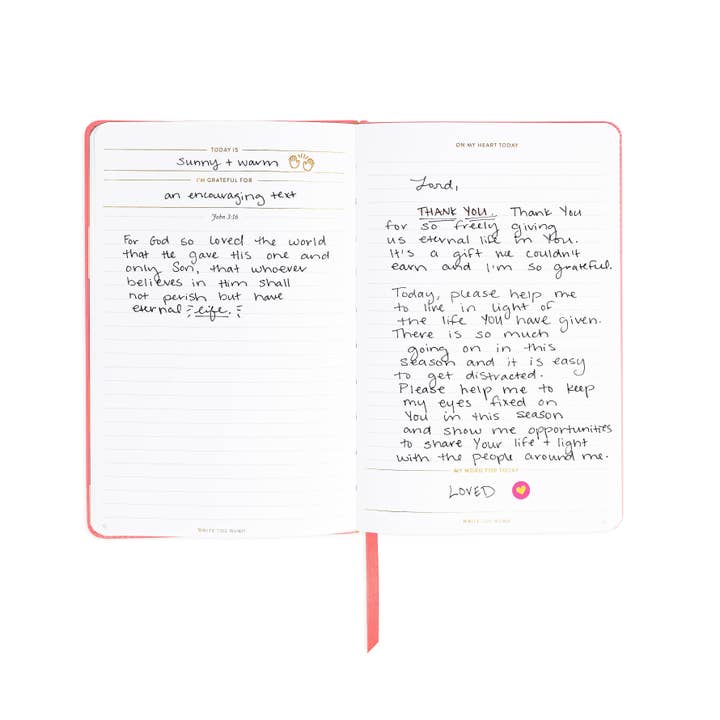 TODAY IS
sunny + warm
I'M GRATEFUL FOR
an encouraging text
John 3:16
For God so loved the world
that He gave His one and
only Son, that whoever
believes in Him shall
not perish but have
eternal life.
WRITE THE WORD
ON MY HEART TODAY
Lord,
THANK YOU. Thank You
for so freely giving
us eternal life in You.
It's a gift we couldn't
earn and I'm so grateful.
Today, please help me
to live in light of
the life You have given.
There is so much
going on in this
season and it is easy
to get distracted.
Please help me to keep
my eyes fixed on
You in this season
and show me opportunities
to share Your life + light
with the people around me.
MY WORD FOR TODAY
LOVED
WRITE THE WORD